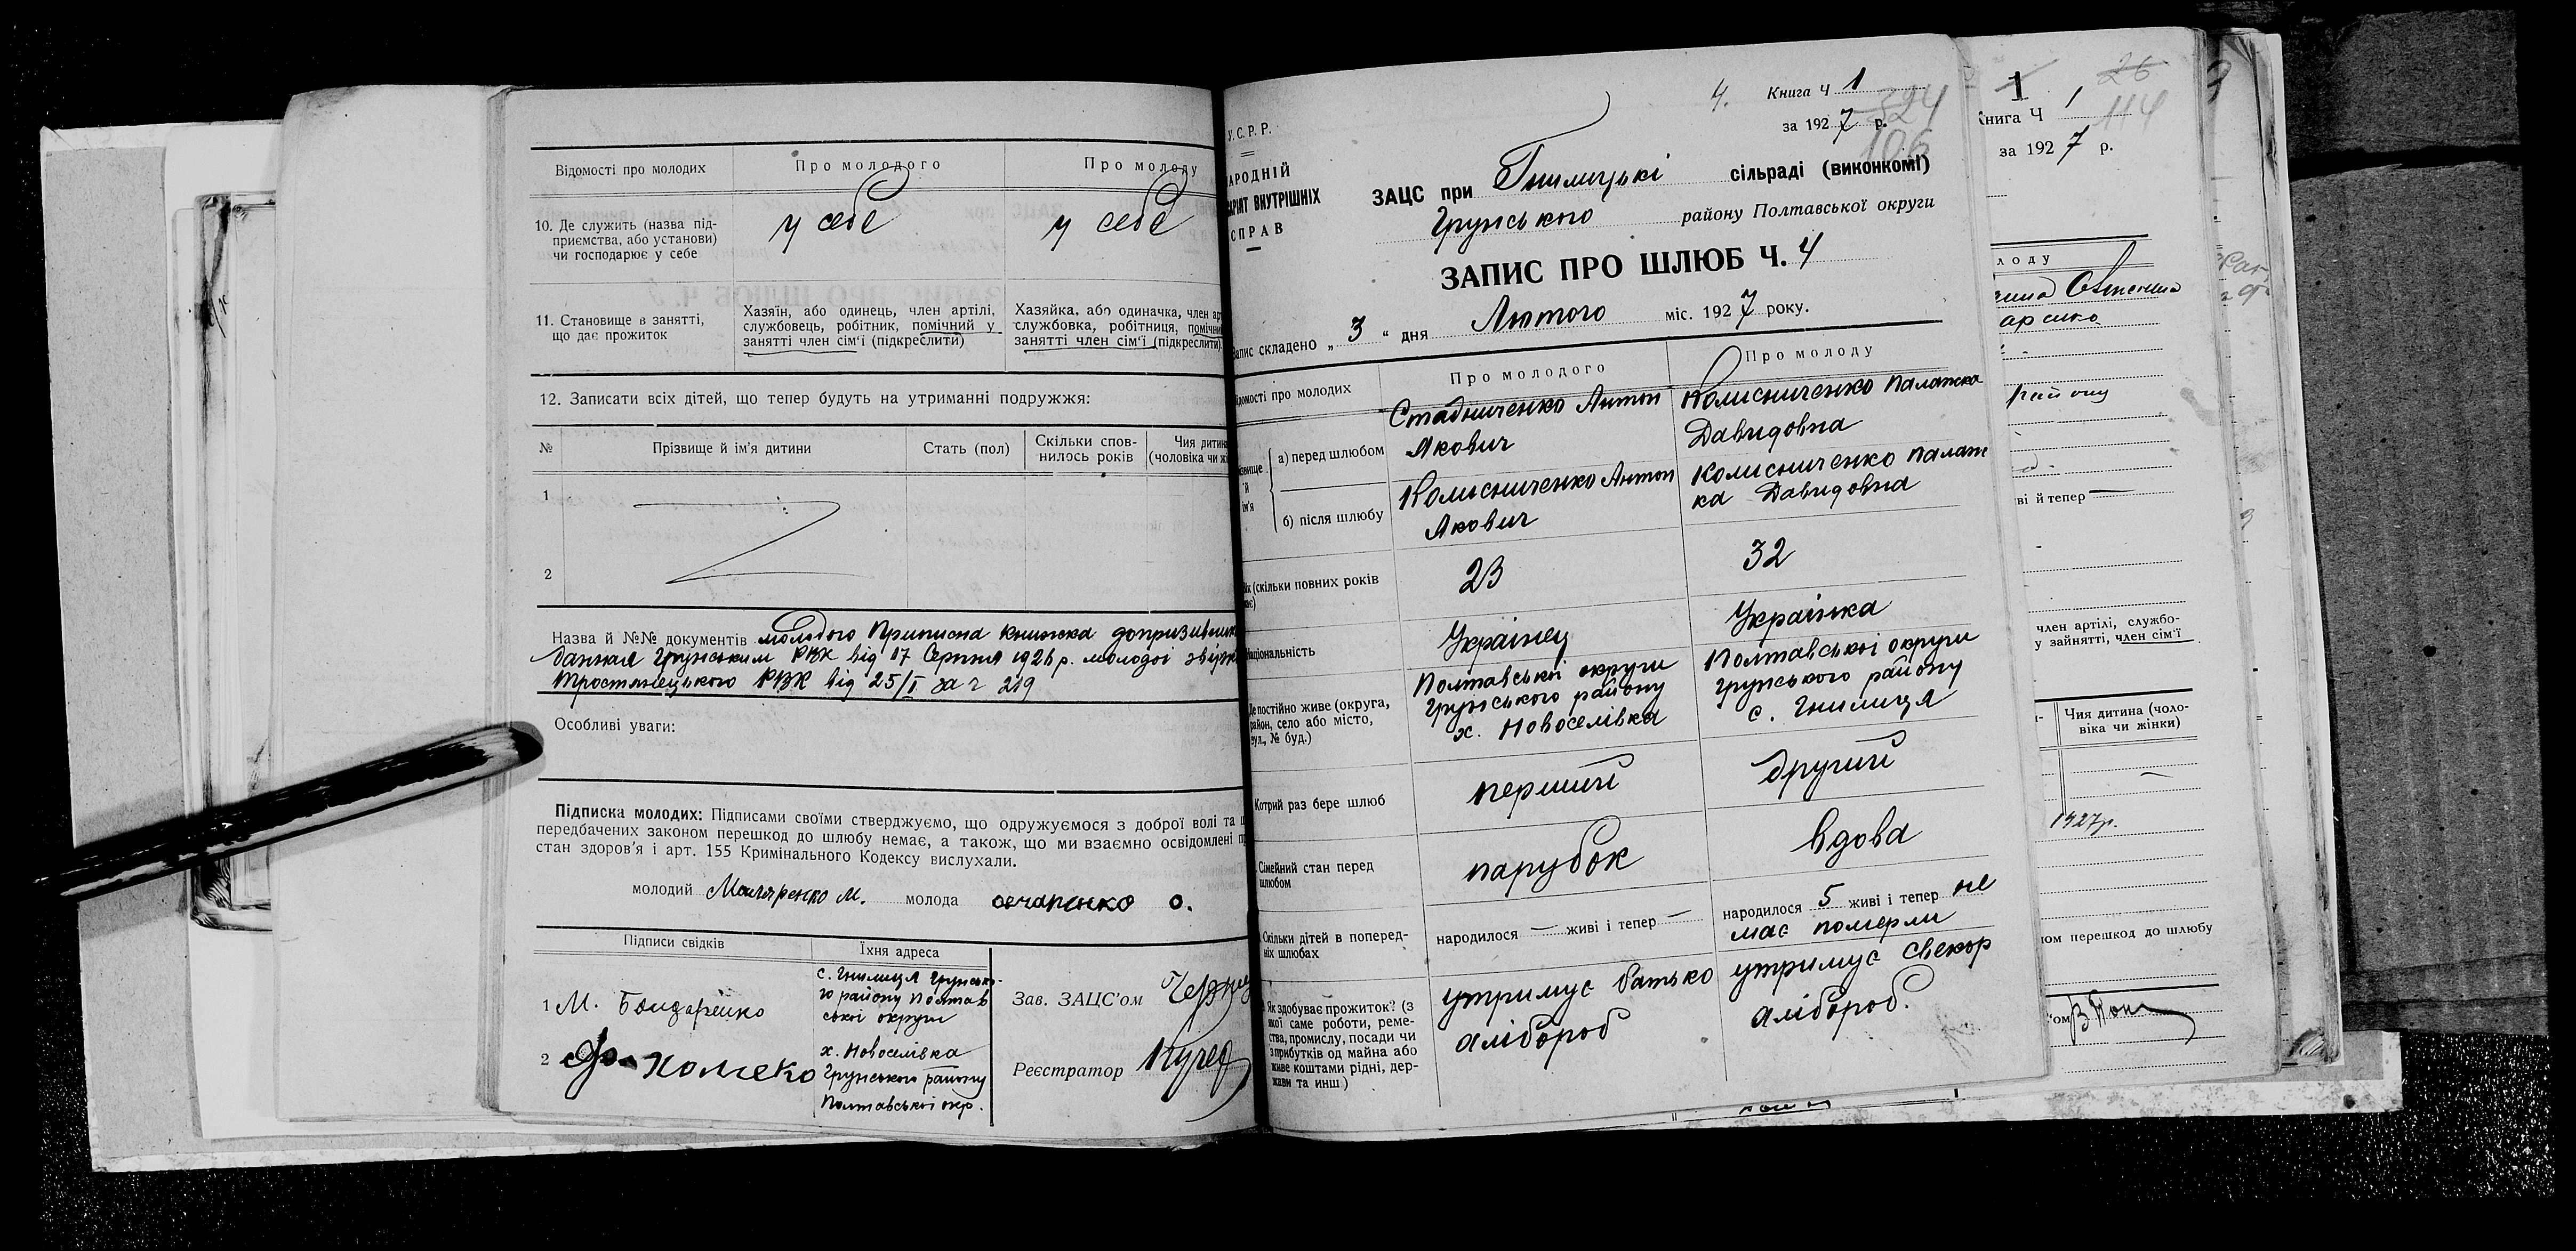 Відомості про молодих
Про молодого
Про молоду
10. Де служить (назва під-
приємства, або установи)
чи господарює у себе
у себе
у себе
11. Становище в занятті,
що дає прожиток
Хазяїн, або одинець, член артілі,
службовець, робітник, помічний у
занятті член сім'ї (підкреслити)
Хазяйка, або одиначка, член
службовка, робітниця,
занятті член сім'ї (підкреслити)
12. Записати всіх дітей, що тепер будуть на утриманні подружжя:
№
Прізвище й ім'я дитини
Стать (пол)
Скільки спов-
нилось років
Чия дитина
(чоловіка чи
1
2
Назва й №№ документів молодого Приписна книжка
данная Грунським РВК від 17 Серпня 1926 р. молодоі
Тростянецького РВК від 25/I за ч 219
Особливі уваги:
Підписка молодих: Підписами своїми стверджуємо, що одружуємося з доброї волі та
передбачених законом перешкод до шлюбу немає, а також, що ми взаємно освідомлені
стан здоров'я і арт. 155 Кримінального Кодексу вислухали.
молодий Маляренко М. молода овчаренко о.
Підписи свідків
Їхня адреса
1 М. Бондаренко
с. Гнилиця Грунсько-
го району Полтав
ськоі округи
Зав. ЗАЦС'ом
2
х. Новоселівка
Грунського району
Полтавськоі окр.
Реєстратор
У.С.Р.Р.
ВНУТРІШНІХ
СПРАВ
4.
Книга Ч 1
за 1927 р.
324
106
ЗАЦС при Гнилицькі сільраді (виконкомі)
Грунського району Полтавської округи
ЗАПИС ПРО ШЛЮБ Ч. 4
Запис складено „ 3 “ дня Лютого міс. 1927 року.
Відомості про молодих
Про молодого
Про молоду
а) перед шлюбом
Стадниченко Антон
Якович
Колисниченко Палажка
Давидовна
й
ім'я
б) після шлюбу
Колисниченко Антон
Якович
Колисниченко Палаж
ка Давидовна
(скільки повних років
23
32
Національність
Украінец
Украінка
Де постійно живе (округа,
район, село або місто,
вул., № буд.)
Полтавськоі округи
Грунського району
х. Новоселівка
Полтавськоі округи
Грунського району
с. Гнилиця
Котрий раз бере шлюб
перший
другий
Сімейний стан перед
шлюбом
парубок
вдова
Скільки дітей в поперед-
ніх шлюбах
народилося — живі і тепер —
народилося 5 живі і тепер не
має померли
Як здобуває прожиток? (з
якої саме роботи, реме-
ства, промислу, посади чи
з прибутків од майна або
живе коштами рідні, дер-
жави та инш)
утримує батько
хлібороб
утримує свекор
хлібороб.
1
26
Книга Ч 1
114
за 1927 р.
лоду
району
ві й тепер —
член артілі, службо-
у зайнятті, член сім'ї
Чия дитина (чоло-
віка чи жінки)
1927р.
перешкод до шлюбу